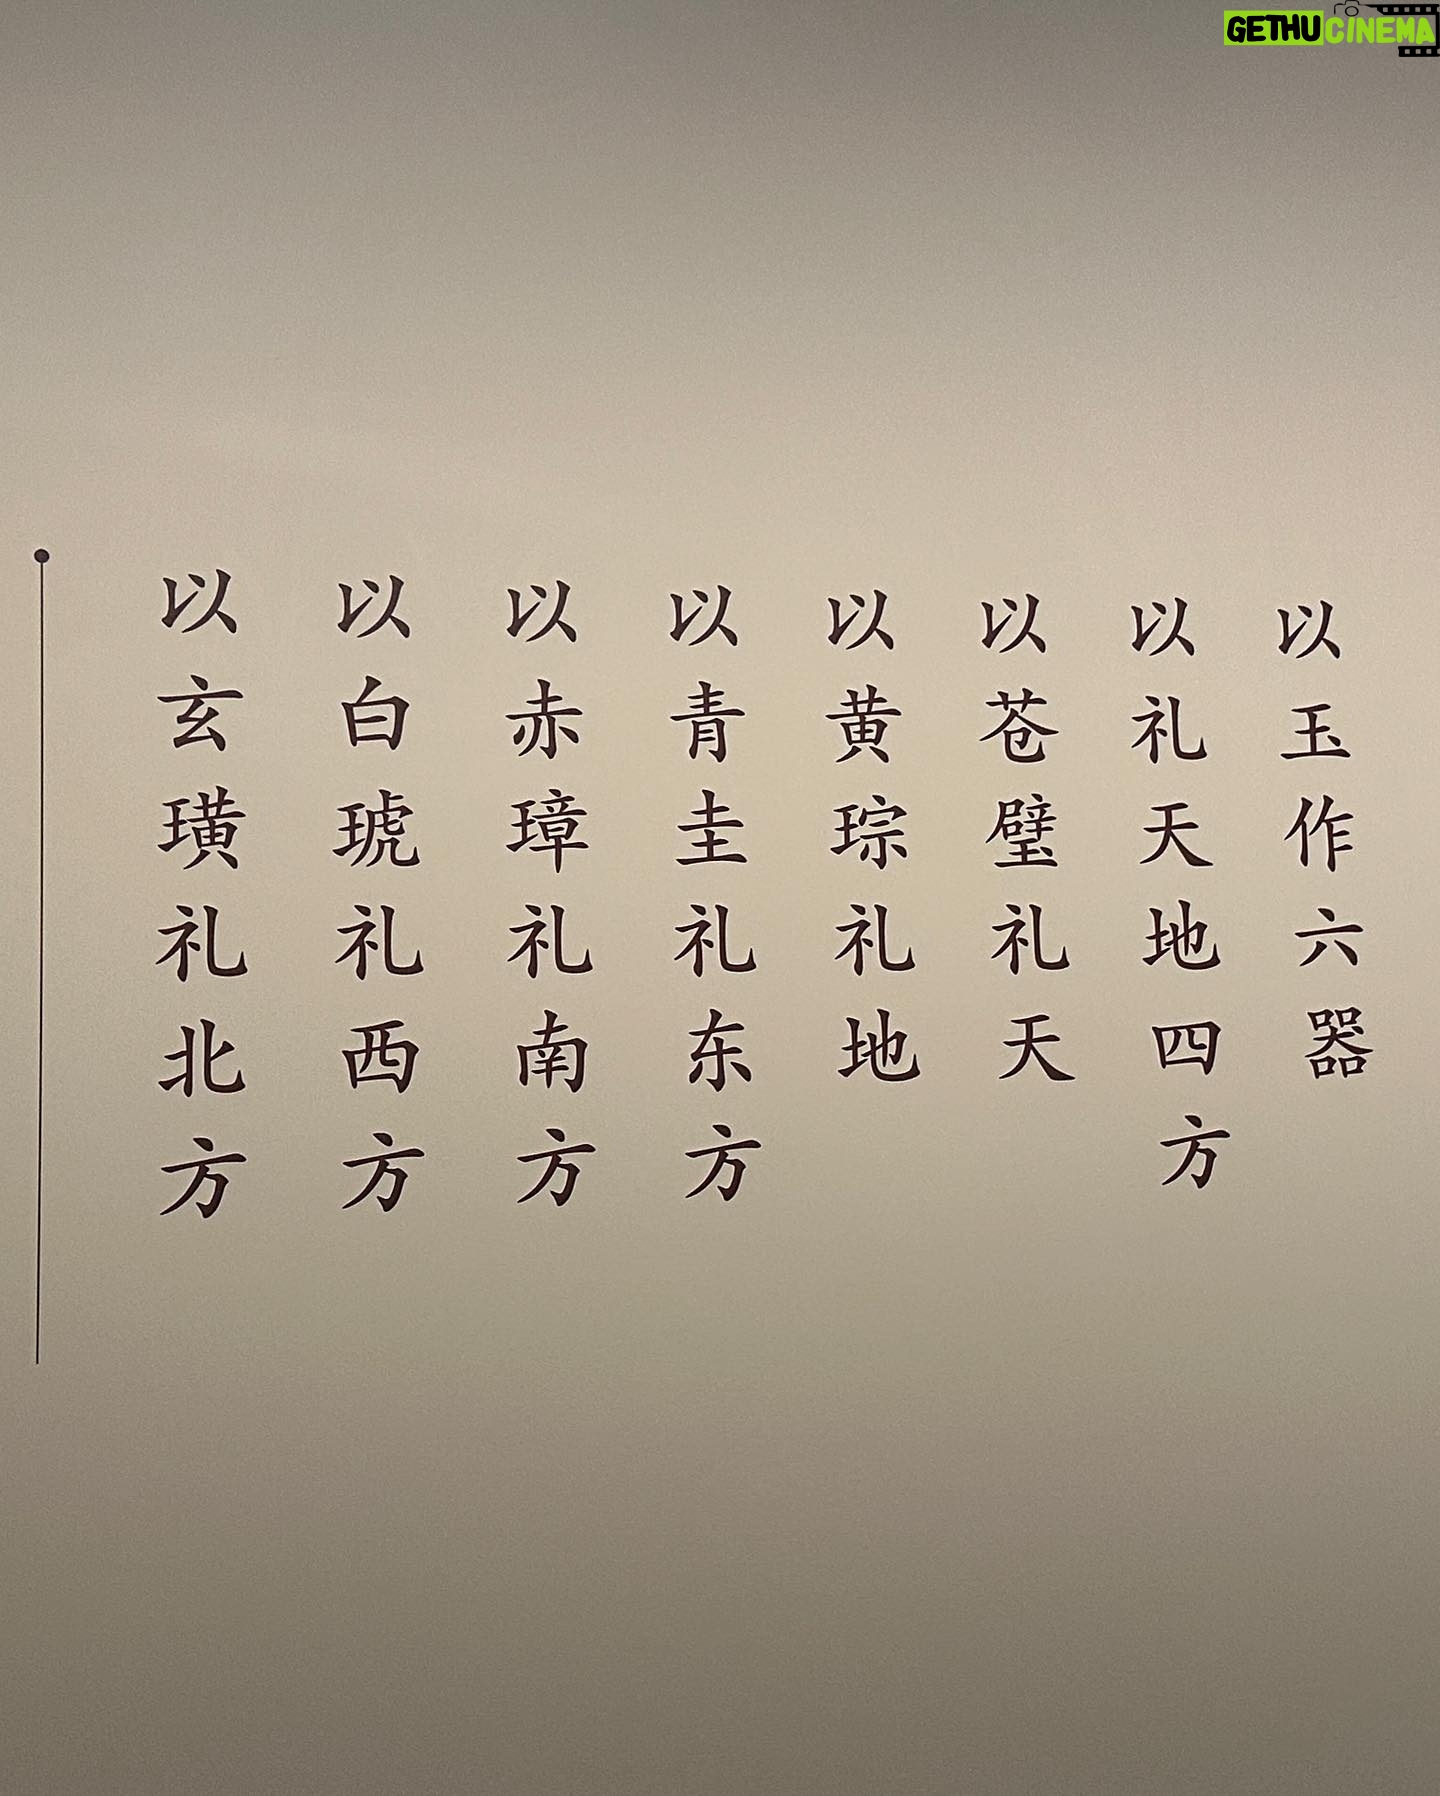 GETHUCINEMA
以玉作六器
以礼天地四方
以苍璧礼天
以黄琮礼地
以青圭礼东方
以赤璋礼南方
以白琥礼西方
以玄璜礼北方